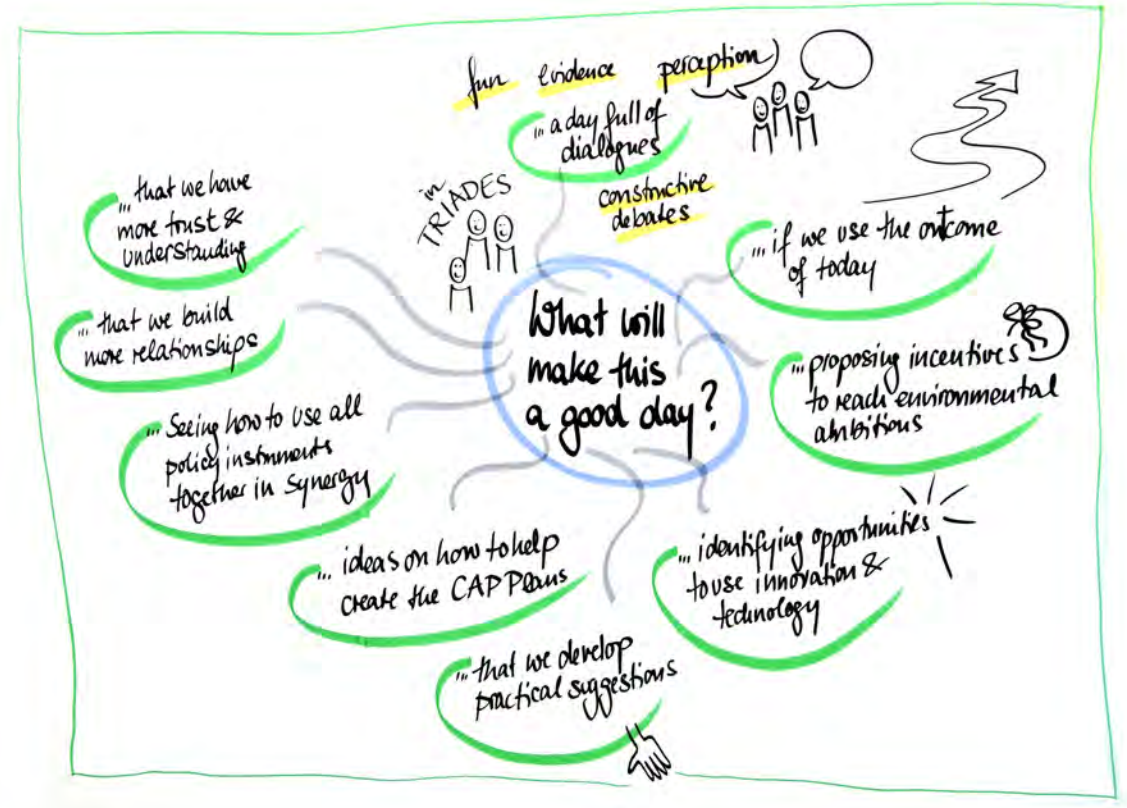 fun evidence perception
... a day full of
dialogues
constructive
debates
in
TRIADES
What will
make this
a good day?
... if we use the outcome
of today
... proposing incentives
to reach environmental
ambitions
... identifying opportunities
to use innovation &
technology
... that we develop
practical suggestions
... ideas on how to help
create the CAP Plans
... Seeing how to use all
policy instruments
together in synergy
... that we build
more relationships
... that we have
more trust &
understanding